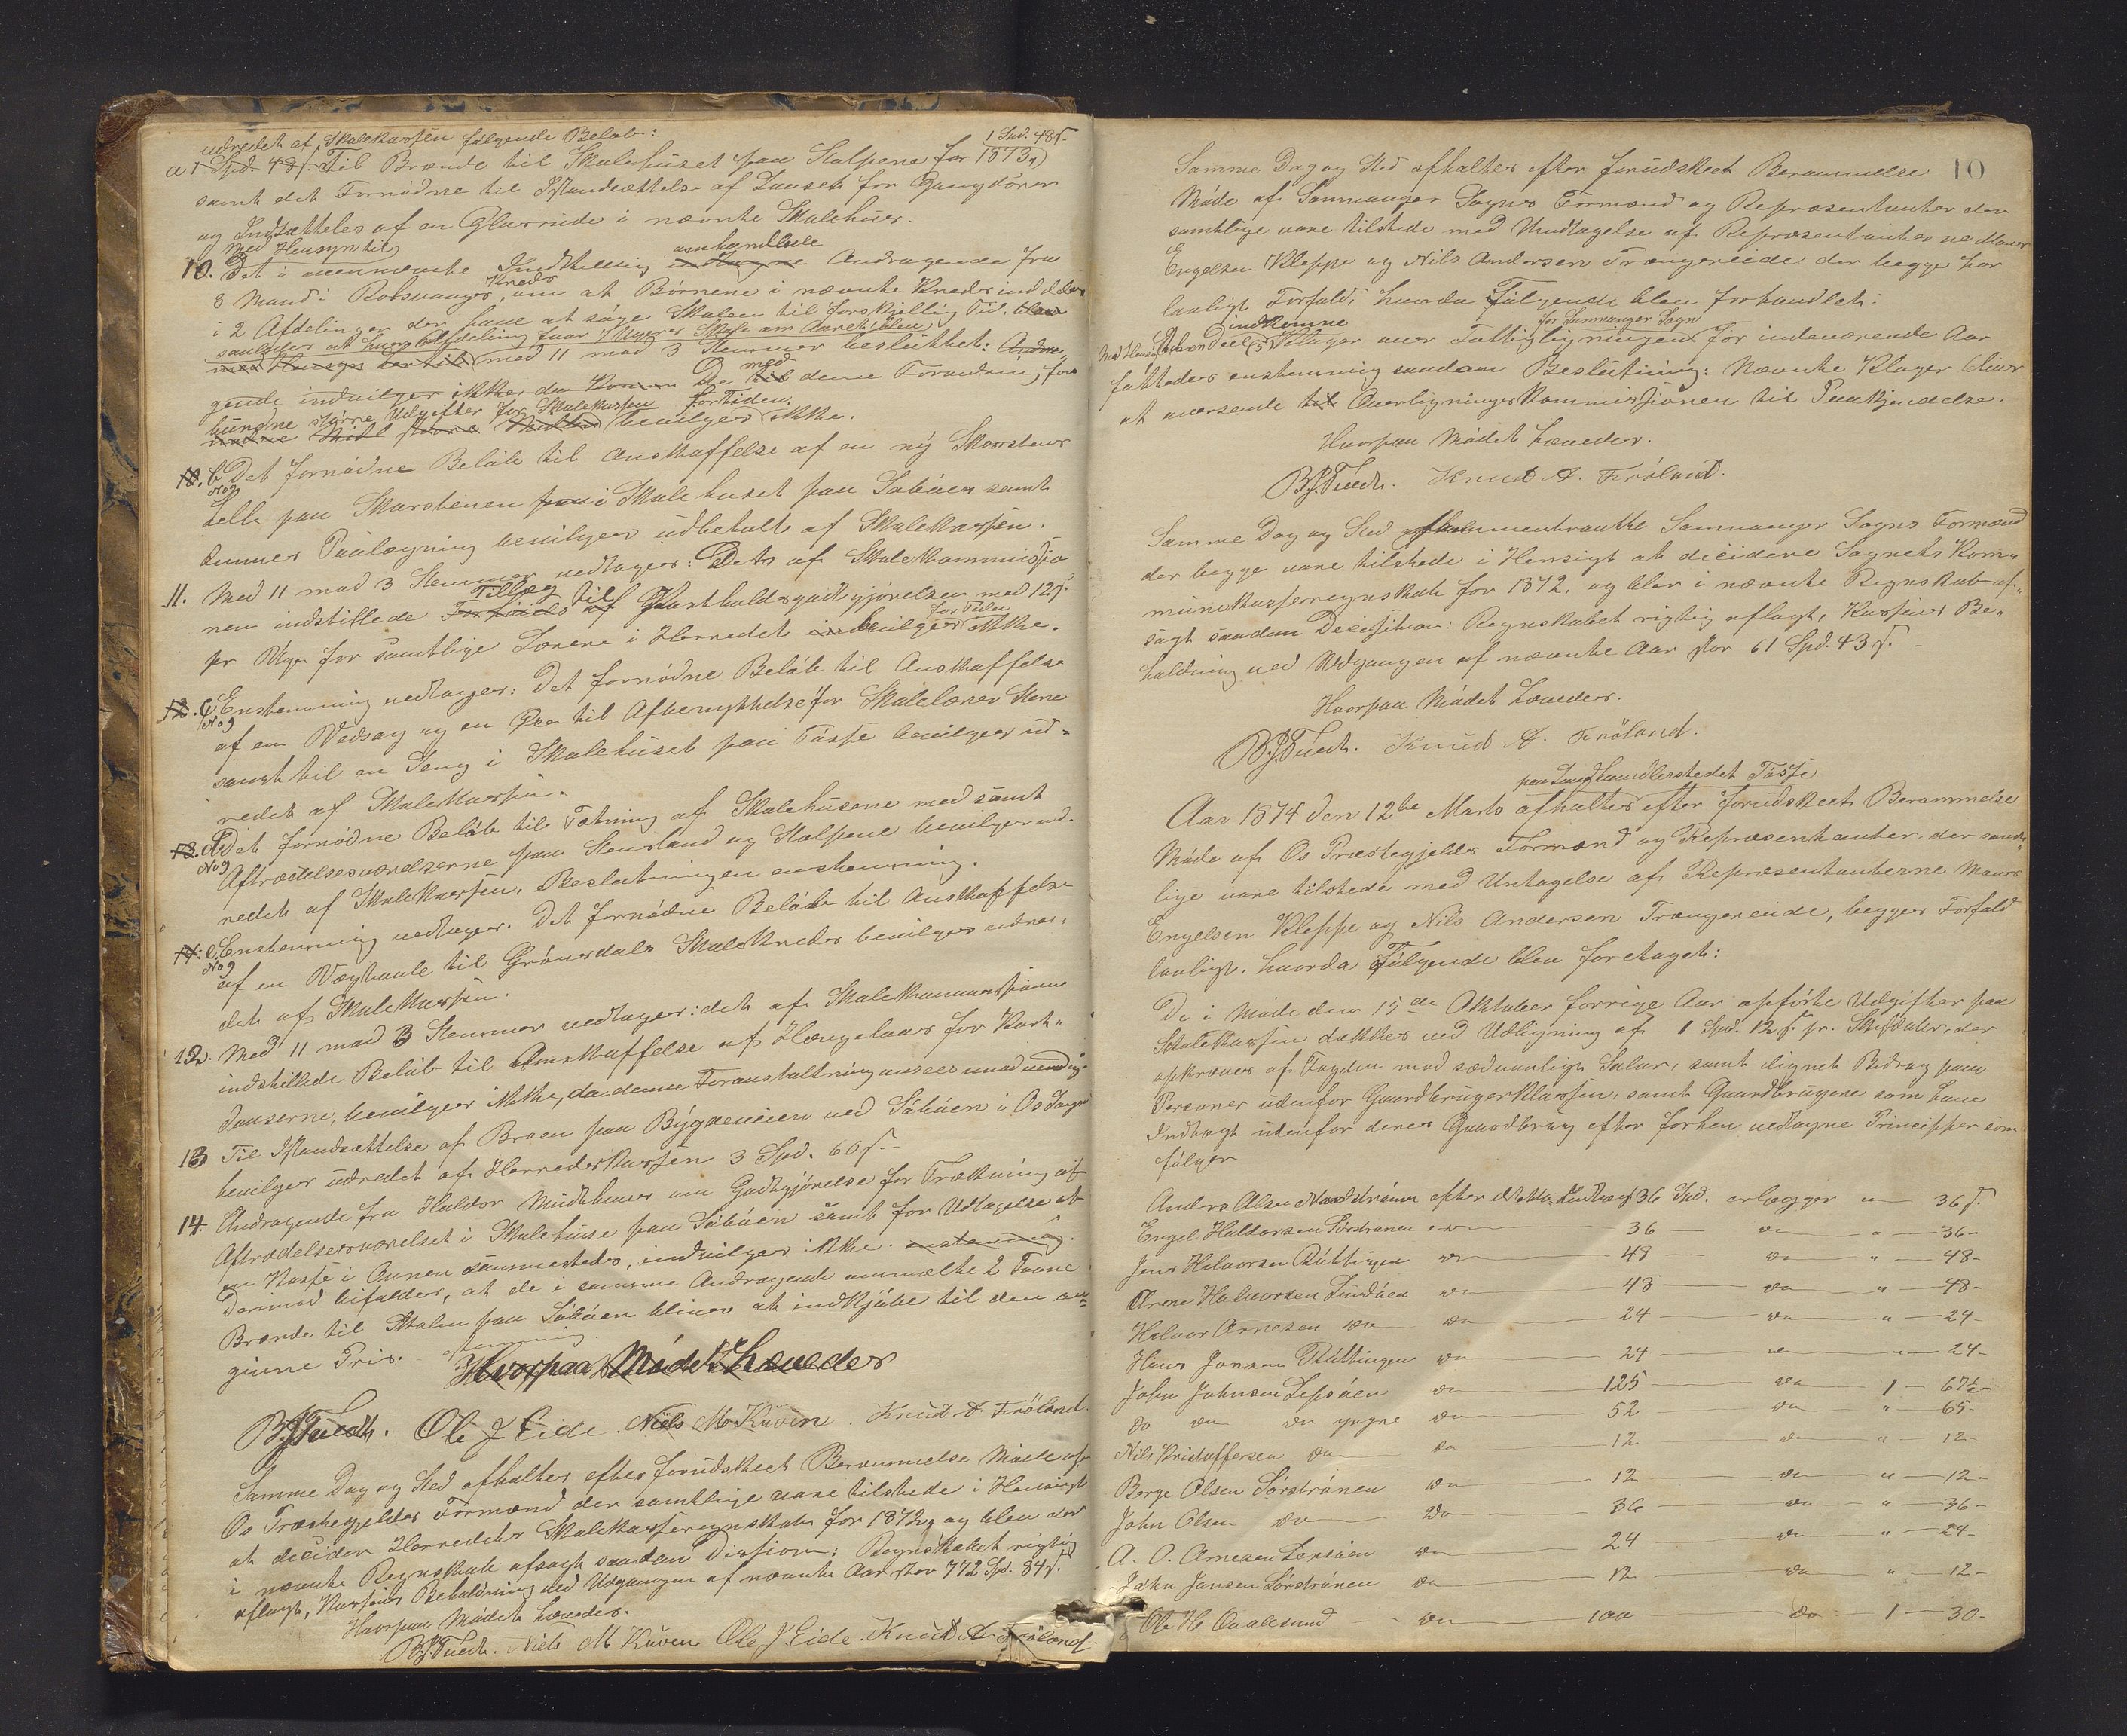 udredet af Skolekassen følgende Beløb:
a 1 Spd. 48 s. Til Brænde til Skolehuset paa Stolpene for 1873,
1 Spd. 48 s.
samt det Fornødne til Istandsættelse af Laaset for Gangdøren
og Indsættelse af en Glasrude i nævnte Skolehuus.
Med Hensyn til
10. Det i indstilling omhandlede Andragende fra
8 Mænd i Kreds, om at Børnene i nævnte Kreds inddeles
i 2 Afdelinger der have at søge Skolen til forskjellig Tid,
saaledes at hver Afdeling faar 7 Uger Skole om Aaret
med Hensyn hertil med 11 mod 3 Stemmer besluttet:
gende indvilges ikke da De med denne Forandring for-
bundne større Udgifter for Skolekassen fortiden
bevilges ikke.
10. b Det fornødne Beløb til Anskaffelse af en ny Skorsteens
No 9
helle paa Skorstenen i Skolehuset paa Søbøen samt
sammes Paalægning bevilges udbetalt af Skolekassen.
11. Med 11 mod 3 Stemmer vedtages: Det af Skolekommissio
nen indstillede Tillæg til Kostholdsgodtgjørelsen med 12 s.
pr Uge for samtlige Lærere i Herredet bevilges for Tiden ikke.
12. c Enstemmig vedtages: Det fornødne Beløb til Anskaffelse
No 9
af en Vedsag og en Øxe til Afbenyttelse for Skolelærer
samt til en Seng i Skolehuset paa Tøsse bevilges ud-
redet af Skolekassen.
13. d Det fornødne Beløb til Tætning af Skolehusene med samt
No 9
Aftrædelsesværelserne paa og Stolpene bevilges ud-
redet af Skolekassen. Beslutningen enstemmig.
14. e Enstemmig vedtages. Det fornødne Beløb til Anskaffelse
No 9
af en Vægtavle til Grønsdals Skolekreds bevilges udre-
det af Skolekassen.
12. Med 11 mod 3 Stemmer vedtages: det af Skolekommissionen
indstillede Beløb til Anskaffelse af Hængelaas for Kort-
daaserne, bevilges ikke, da denne Foranstaltning ansees unødvendig.
13. Til Istandsættelse af Broen paa Bygdeveien ved Søbøen i Os Sogn
bevilges udredet af Herredskassen 3 Spd. 60 s.
14. Andragende fra Haldor Midthuus om Godtgjørelse for Trækning af
Aftrædelsesværelset i Skolehuset paa Søbøen samt for Udtagelse af
en i Ovnen sammesteds, indvilges ikke. enstemmig.
Derimod bifaldes, at de i samme Andragende ommeldte 2 Favne
Brænde til Skolen paa Søbøen bliver at indkjøbe til den an-
givne Pris.
Hvorpaa Mødet hævedes
B. J. Tuedt. Ole J Eide. Niels M Kuven. Knud A. Frøland.
Samme Dag og Sted afholtes efter forudskeet Berammelse Møde af
Os Præstegjelds Formænd der samtlige vare tilstede i Hensigt
at decidere Herredets Skolekasseregnskab for 1872, og blev der
i nævnte Regnskab afsagt saadan Decision: Regnskabet rigtig
aflagt, Kassens Beholdning ved Udgangen af nævnte Aar stor 772 Spd. 84 s.
Hvorpaa Mødet hævedes.
B. J. Tuedt. Niels M Kuven Ole J. Eide. Knud A. Frøland.
10
Samme Dag og Sted afholtes efter forudskeet Berammelse
Møde af Samnanger Sogns Formænd og Repræsentanter der
samtlige vare tilstede med Undtagelse af Repræsentanterne Mons
Engelsen Kleppe og Nils Andersen Trængereide der begge har
lovligt Forfald, hvorda Følgende blev forhandlet:
Med Hensyn til indkomne (5) Klager over Fattigligningen for Samnanger Sogn for indeværende Aar
fattedes enstemmig saadan Beslutning: Nævnte Klager bliver
at oversende Overligningskommissionen til Paakjendelse.
Hvorpaa Mødet hævedes.
B. J. Tuedt. Knud A. Frøland.
Samme Dag og Sted sammentraadte Samnanger Sogns Formænd
der begge vare tilstede i Hensigt at decidere Sognets Kom-
munekasseregnskab for 1872, og blev i nævnte Regnskab af-
sagt saadan Decission: Regnskabet rigtig aflagt, Kassens Be-
holdning ved Udgangen af nævnte Aar stor 61 Spd. 43 s.
Hvorpaa Mødet hævedes.
B. J. Tuedt. Knud A. Frøland.
paa Landhandlerstedet Tøsse
Aar 1874 den 12te Marts afholtes efter forudskeet Berammelse
Møde af Os Præstegjelds Formænd og Repræsentanter, der samt-
lige vare tilstede med Untagelse af Repræsentanterne Mons
Engelsen Kleppe og Nils Andersen Trængereide, begges Forfald
lovligt. hvorda Følgende blev foretaget:
De i Møde den 15de Oktober forrige Aar opførte Udgifter paa
Skolekassen dækkes ved Udligning af 1 Spd. 12 s. pr. Skylddaler, der
opkræves af Fogden mod sædvanlige Salær, samt lignet Bidrag paa
Personer udenfor Gaardbrugerklassen, samt Gaardbrugere som have
Indtægt udenfor deres Gaardbrug efter forhen vedtagne Principper som
følger
Anders Olsen Nordstrønen efter Indtægt 36 Spd. erlægger " 36 s.
Engel Haldorsen Sørstrønen do 36 do " 36-
Jens Halvorsen Røttingen do 48 do " 48-
Arne Halvorsen Lindøen do 48 do " 48-
Halvor Arnesen do do 24 do " 24-
Hans Jonsen Røttingen do 24 do " 24-
John Johnsen Lepsøen do 125 do 1 - 67½-
do do do yngre do 52 do " 65-
Nils Kristoffersen do do 12 do " 12-
Berge Olsen Sørstrønen do 12 do " 12-
John Olsen do do 36 do " 36-
A. O. Arnesen Lepsøen do 24 do " 24-
John Jansen Sørstrønen do 12 do " 12-
Ole H. Qvalesund do 100 do 1 - 30-